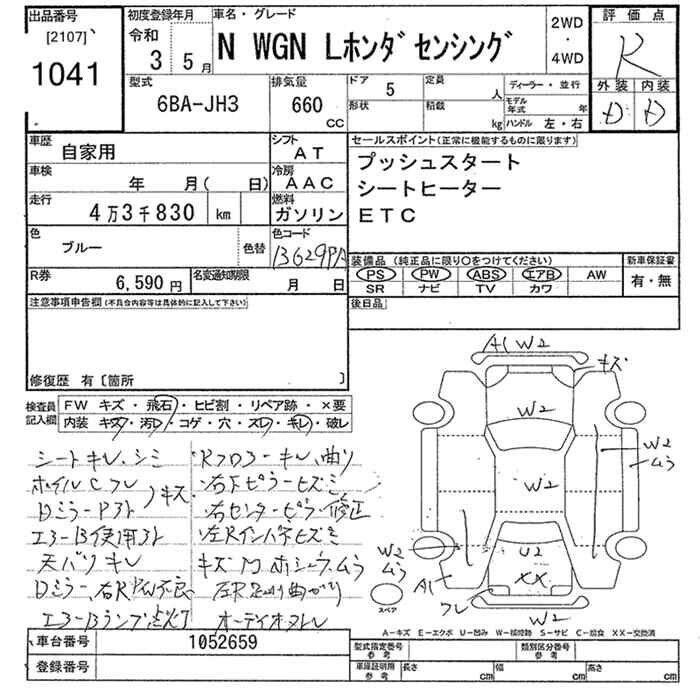 出品番号
[2107]
1041
初度登録年月
令和
3 5月
車名・グレード
N WGN Lホンダセンシング
2WD
・
4WD
評価点
R
外装 内装
D D
型式
6BA-JH3
排気量
660
CC
ドア
5
定員
人
形状
積載
kg
ディーラー・並行
モデル年式 年
ハンドル 左・右
車歴
自家用
シフト
AT
車検
年 月( 日)
冷房
AAC
走行
4万3千830 km
燃料
ガソリン
色
ブルー
色替
色コード
B629PA
R券
6,590円
名変通知期限
月 日
セールスポイント(正常に機能するものに限ります)
プッシュスタート
シートヒーター
ETC
装備品 (純正品に限り○をつけてください)
PS PW ABS エアB AW
SR ナビ TV カワ
新車保証書
有・無
後日品
注意事項申告欄(不具合内容等は具体的に記入して下さい)
修復歴 有〔箇所 〕
検査員記入欄
FW キズ・飛石・ヒビ割・リペア跡・×要
内装 キズ・汚レ・コゲ・穴・スレ・キレ・破レ
シートキレ、シミ
ホイルCフレ キズ
Dミラー
エアーB使用
天バリキレ
Dミラー、右R PW不良
エアーBランプ点灯
Rフロアーキレ、曲り
右Fピラーヒズミ
右センターピラー修正
左Rインパネヒズミ
キズ ムラ
曲がり
オーディオ
A1 W2
キズ
W2
W2
W2
ムラ
W2
ムラ
U2
XX
A1
フレ
W2
スペア
A-キズ E-エクボ U-凹み W-補修跡 S-サビ C-腐食 XX-交換済
車台番号
1052659
登録番号
型式指定番号
参考
類別区分番号
参考
車庫証明用
参考
長さ cm
幅 cm
高さ cm